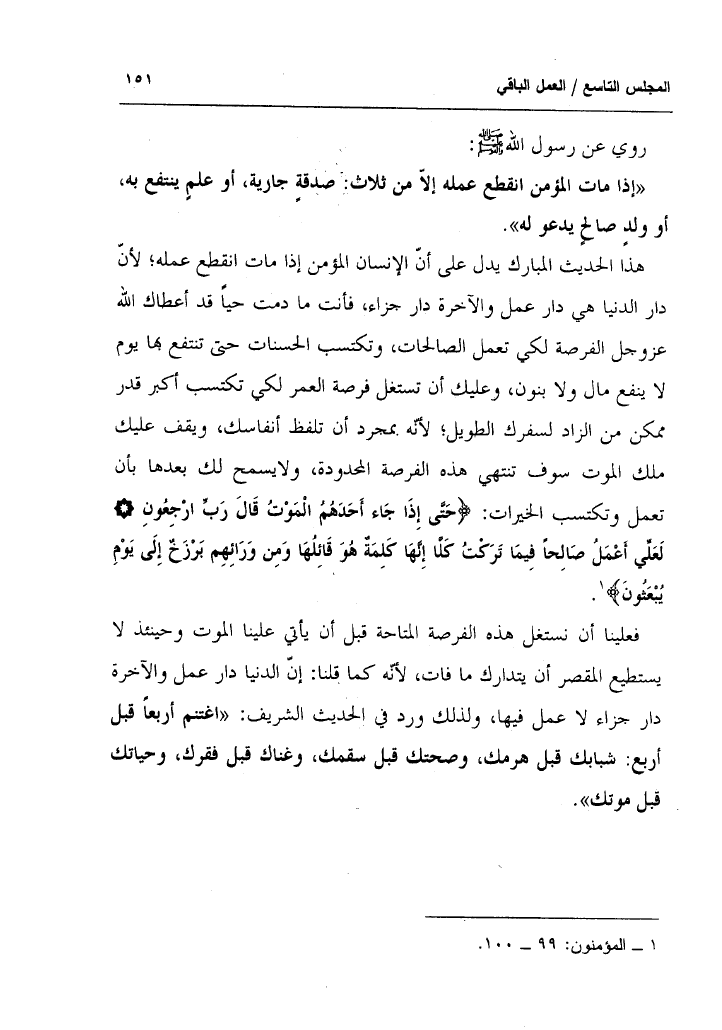 المجلس التاسع / العمل الباقي ١٥١
روي عن رسول الله ﷺ:
«إذا مات المؤمن انقطع عمله إلاّ من ثلاث: صدقةٍ جارية، أو علمٍ ينتفع به،
أو ولدٍ صالحٍ يدعو له».
هذا الحديث المبارك يدل على أنّ الإنسان المؤمن إذا مات انقطع عمله؛ لأنّ
دار الدنيا هي دار عمل والآخرة دار جزاء، فأنت ما دمت حياً قد أعطاك الله
عزوجل الفرصة لكي تعمل الصالحات، وتكتسب الحسنات حتى تنتفع بها يوم
لا ينفع مال ولا بنون، وعليك أن تستغل فرصة العمر لكي تكتسب أكبر قدر
ممكن من الزاد لسفرك الطويل؛ لأنّه بمجرد أن تلفظ أنفاسك، ويقف عليك
ملك الموت سوف تنتهي هذه الفرصة المحدودة، ولايسمح لك بعدها بأن
تعمل وتكتسب الخيرات: ﴿حَتَّى إِذَا جَاء أَحَدَهُمُ الْمَوْتُ قَالَ رَبِّ ارْجِعُونِ ۞
لَعَلِّي أَعْمَلُ صَالِحاً فِيمَا تَرَكْتُ كَلَّا إِنَّهَا كَلِمَةٌ هُوَ قَائِلُهَا وَمِن وَرَائِهِم بَرْزَخٌ إِلَى يَوْمِ
يُبْعَثُونَ﴾١.
فعلينا أن نستغل هذه الفرصة المتاحة قبل أن يأتي علينا الموت وحينئذ لا
يستطيع المقصر أن يتدارك ما فات، لأنّه كما قلنا: إنّ الدنيا دار عمل والآخرة
دار جزاء لا عمل فيها، ولذلك ورد في الحديث الشريف: «اغتنم أربعاً قبل
أربع: شبابك قبل هرمك، وصحتك قبل سقمك، وغناك قبل فقرك، وحياتك
قبل موتك».
١ ـ المؤمنون: ٩٩ ـ ١٠٠.